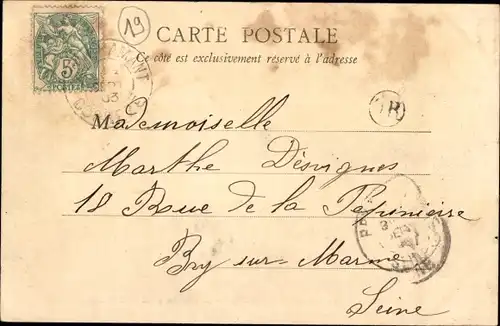 19
CARTE POSTALE
Ce côté est exclusivement réservé à l'adresse
5c
BR
Mademoiselle
Marthe Désvignes
18 Rue de la Pépinière
Bry sur Marne
Seine